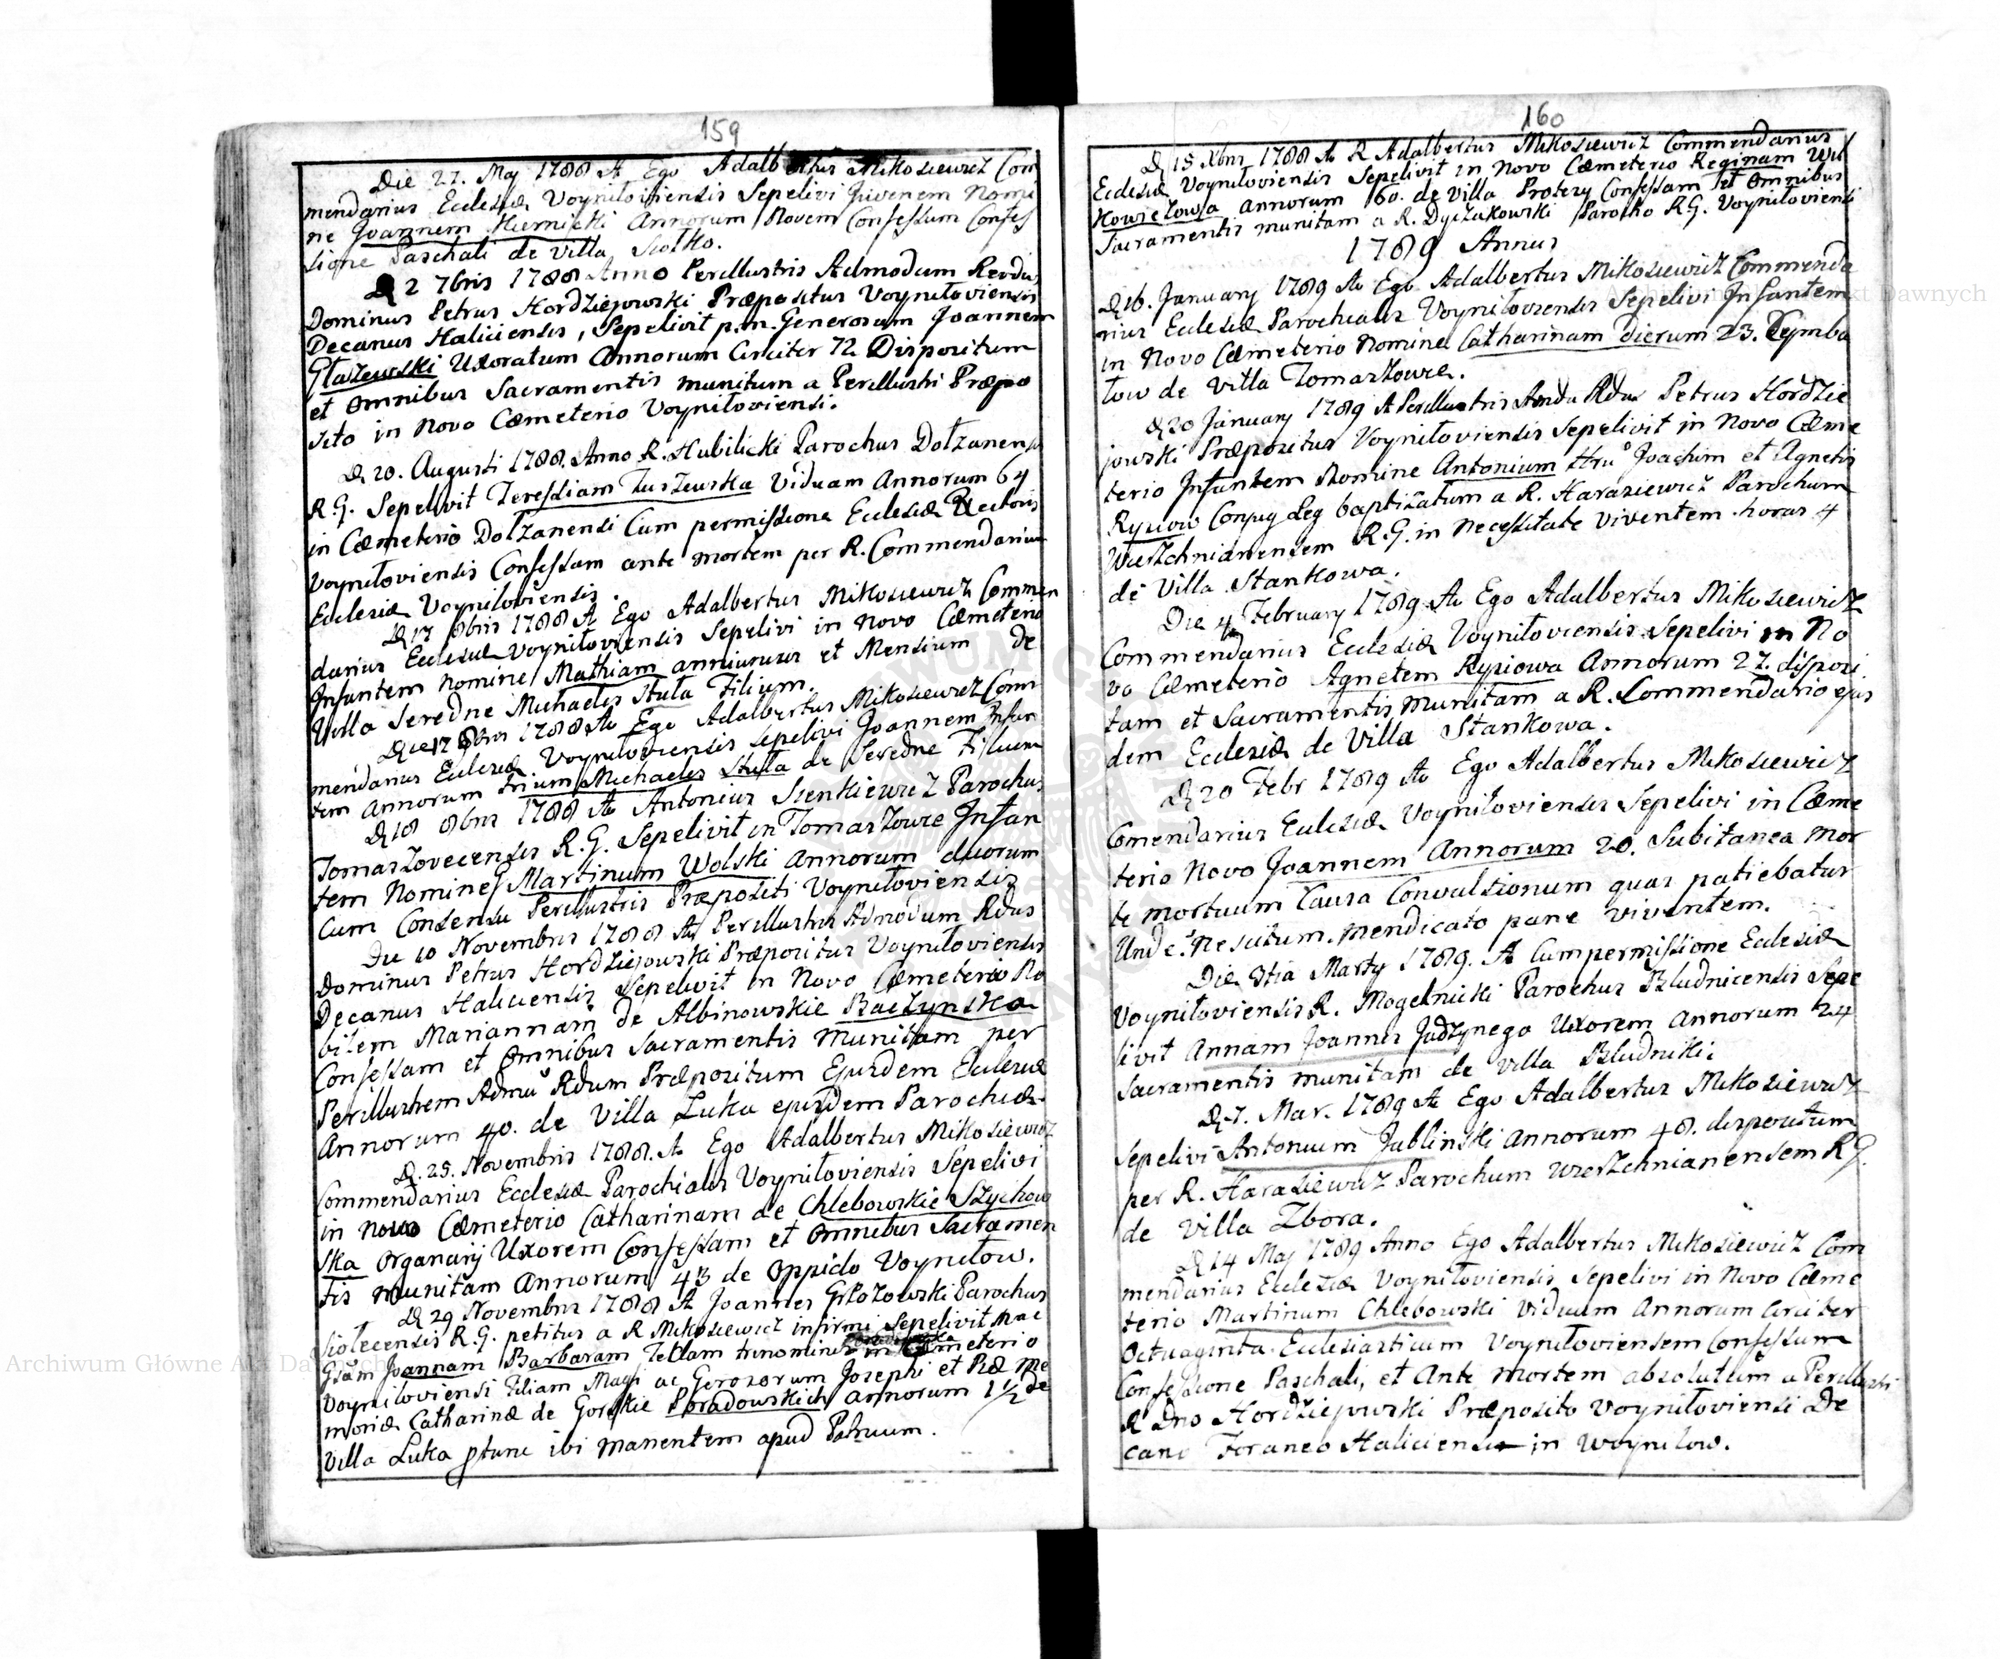 159
Die 27. Maj 1788 A Ego Adalbertus Mikosiewicz Com
mendarius Ecclesiæ Voyniłoviensis Sepelivi Juvenem Nomi
ne Joannem Kiernicki Annorum Novem Confessum Confes
sione Paschali de Villa Siołko.
D 2 7bris 1788 Anno Perillustris Admodum Revdus
Dominus Petrus Hordziejowski Præpositus Voyniłoviensis
Decanus Haliciensis, Sepelivit p.m. Generosum Joannem
Głazewski Uxoratum Annorum Circiter 72 Dispositum
et Omnibus Sacramentis munitum a Perillustri Præpo
sito in Novo Cæmeterio Voyniłoviensi.
D 20. Augusti 1788. Anno R. Hubilicki Parochus Dołzanensis
R.G. Sepelivit Teressiam Tuszewska Viduam Annorum 64
in Cæmeterio Dołzanensi Cum permissione Ecclesiæ Rectoris
Voyniłoviensis Confessam ante mortem per R. Commendarium
Ecclesiæ Voyniłoviensis.
D 17 8bris 1788 A Ego Adalbertus Mikosiewicz Commen
darius Ecclesiæ Voyniłoviensis Sepelivi in Novo Cæmeterio
Infantem nomine Mathiam anniurius et Mensium de
Villa Seredne Michaelis Huta Filium.
Die 17 8bris 1788 Ao Ego Adalbertus Mikosiewicz Com
mendarius Ecclesiæ Voyniłoviensis sepelivi Joannem Infan
tem Annorum trium Michaelis Huta de Seredne Filium
D 18 8bris 1788 Ao Antonius Sienkiewicz Parochus
Tomaszovecensis R.G. Sepelivit in Tomaszowce Infan
tem Nomine Martinum Wolski Annorum duorum
Cum Consensu Perillustris Præpositi Voyniłoviensis
Die 10 Novembris 1788 Ao Perillustris Admodum Rdus
Dominus Petrus Hordziejowski Præpositus Voyniłoviensis
Decanus Haliciensis Sepelivit in Novo Cæmeterio No
bilem Mariannam de Albinowskie Baczynska
Confessam et Omnibus Sacramentis Munitam per
Perillustrem Admu Rdum Præpositum Ejusdem Ecclesiæ
Annorum 40. de Villa Luka ejusdem Parochiæ
D. 25. Novembris 1788. Ao Ego Adalbertus Mikosiewicz
Commendarius Ecclesiæ Parochialis Voyniłoviensis Sepelivi
in Novo Cæmeterio Catharinam de Chlebowskie Szychow
ska Organarij Uxorem Confessam et Omnibus Sacramen
tis munitam Annorum 43 de Oppido Voyniłow.
D 29 Novembris 1788 A Joannes Głozowski Parochus
Siolecensis R.G. petitus a R Mikosiewicz infirmo Sepelivit Mae
Gsam Joannam Barbaram Teklam trinominis in Cæmeterio
Voyniłoviensi Filiam Magi ac Gerosorum Josephi et Piæ me
moriæ Catharinæ de Gorskie Poradowskich annorum 1 1/2 de
Villa Luka ptunc ibi manentem apud Patruum.
160
D 15 Xbris 1788 Ao R Adalbertus Mikosiewicz Commendarius
Ecclesiæ Voyniłoviensis Sepelivit in Novo Cæmeterio Reginam Wit
kowiczowa annorum 60. de Villa Protesy Confessam et Omnibus
Sacramentis munitam a R. Dyczakowski Parocho R.G. Voyniłoviensi
1789 Annus
D 16. January 1789 Ao Ego Adalbertus Mikosiewicz Commenda
rius Ecclesiæ Parochialis Voyniłoviensis Sepelivi Infantem
in Novo Cæmeterio nomine Catharinam dierum 23. Cymba
low de Villa Tomaszowce.
D 20 January 1789 A Perillustris Amdu Rdus Petrus Hordzie
jowski Præpositus Voyniłoviensis Sepelivit in Novo Cæme
terio Infantem Nomine Antonium Hru Joachim et Agnetis
Rysiow Conjug Leg baptisatum a R. Harasiewicz Parochum
Wierzchnianensem R.G. in Necessitate Viventem horas 4
de Villa Stankowa.
Die 4 February 1789 Ao Ego Adalbertus Mikosiewicz
Commendarius Ecclesiæ Voyniłoviensis Sepelivi in No
vo Cæmeterio Agnetem Rysiowa Annorum 27. disposi
tam et Sacramentis munitam a R. Commendario ejus
dem Ecclesiæ de Villa Stankowa.
D 20 Febr 1789 Ao Ego Adalbertus Mikosiewicz
Comendarius Eulesiæ Voyniłoviensis Sepelivi in Cæme
terio Novo Joannem Annorum 20. Subitanea mor
te mortuum Causa Convulsionum quas patiebatur
Unde: Nescitum. mendicato pane viventem.
Die 3tia Marty 1789. A Cum permissione Ecclesiæ
Voyniłoviensis R. Mogelnicki Parochus Bludnicensis Sepe
livit Annam Joannis Judzynego Uxorem Annorum 24
Sacramentis munitam de Villa Bludniki:
D 7. Mar. 1789 A Ego Adalbertus Mikosiewicz
Sepelivi Antonium Jublinski Annorum 48. dispositum
per R. Harasiewicz Parochum Wierzchnianensem R G.
de Villa Zbora.
D 14 Maj 1789 Anno Ego Adalbertus Mikosiewicz Com
mendarius Ecclesiæ Voyniłoviensis Sepelivi in Novo Cæme
terio Martinum Chlebowski Viduum Annorum Circiter
Octuaginta Eculesiasticum Voyniłoviensem Confessum
Confessione Paschali, et Ante Mortem absolutum a Perillustri
R Dno Hordziejowski Præposito Voyniłoviensi De
cano Foraneo Haliciensi in Woyniłow.
Archiwum Główne Akt Dawnych
Archiwum Główne Akt Dawnych